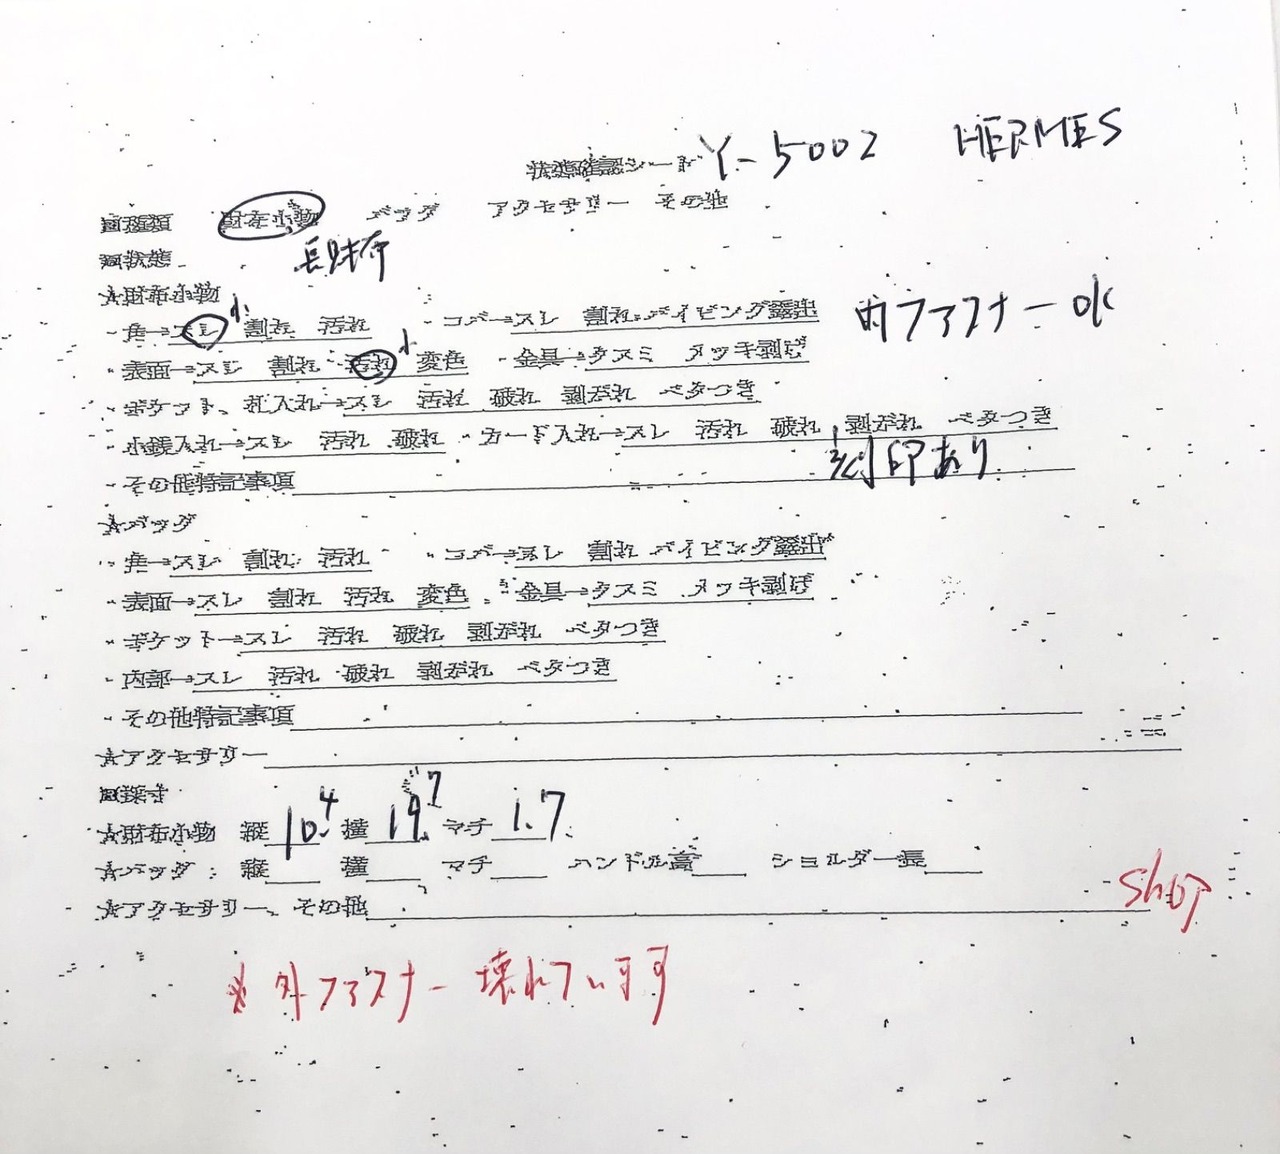 状態確認シート Y-5002 HERMES
■種類 財布小物 バッグ アクセサリー その他
■状態 長財布
☆財布小物
・角→スレ 小 割れ 汚れ ・コバ→スレ 割れ パイピング露出 内ファスナーOK
・表面→スレ 割れ 汚れ 小 変色 ・金具→クスミ メッキ剥げ
・ポケット、札入れ→スレ 汚れ 破れ 剥がれ ベタつき
・小銭入れ→スレ 汚れ 破れ ・カード入れ→スレ 汚れ 破れ 剥がれ ベタつき
・その他特記事項 刻印あり
☆バッグ
・角→スレ 割れ 汚れ ・コバ→スレ 割れ パイピング露出
・表面→スレ 割れ 汚れ 変色 ・金具→クスミ メッキ剥げ
・ポケット→スレ 汚れ 破れ 剥がれ ベタつき
・内部→スレ 汚れ 破れ 剥がれ ベタつき
・その他特記事項
☆アクセサリー
■採寸
☆財布小物 縦 10.4 横 19.7 マチ 1.7
☆バッグ: 縦 横 マチ ハンドル高 ショルダー長
☆アクセサリー、その他
SHOP
※外ファスナー壊れています